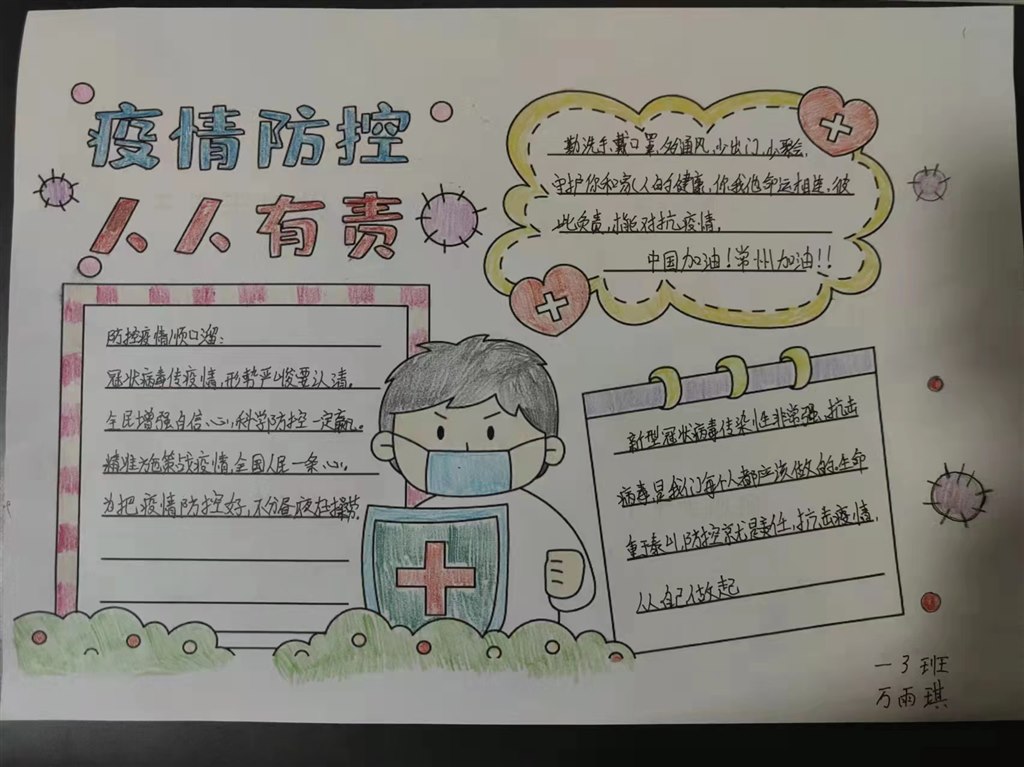 疫情防控
人人有责
勤洗手,戴口罩,多通风,少出门,少聚会,
守护你和家人的健康,你我他命运相连,彼
此负责,才能对抗疫情。
中国加油!常州加油!!
防控疫情顺口溜:
冠状病毒传疫情,形势严峻要认清。
全民增强自信心,科学防控一定赢。
精准施策战疫情,全国人民一条心。
为把疫情防控好,不分昼夜在操劳。
新型冠状病毒传染性非常强、抗击
病毒是我们每个人都应该做的,生命
重于泰山,防控就是责任,抗击疫情,
从自己做起
一3班
万雨琪